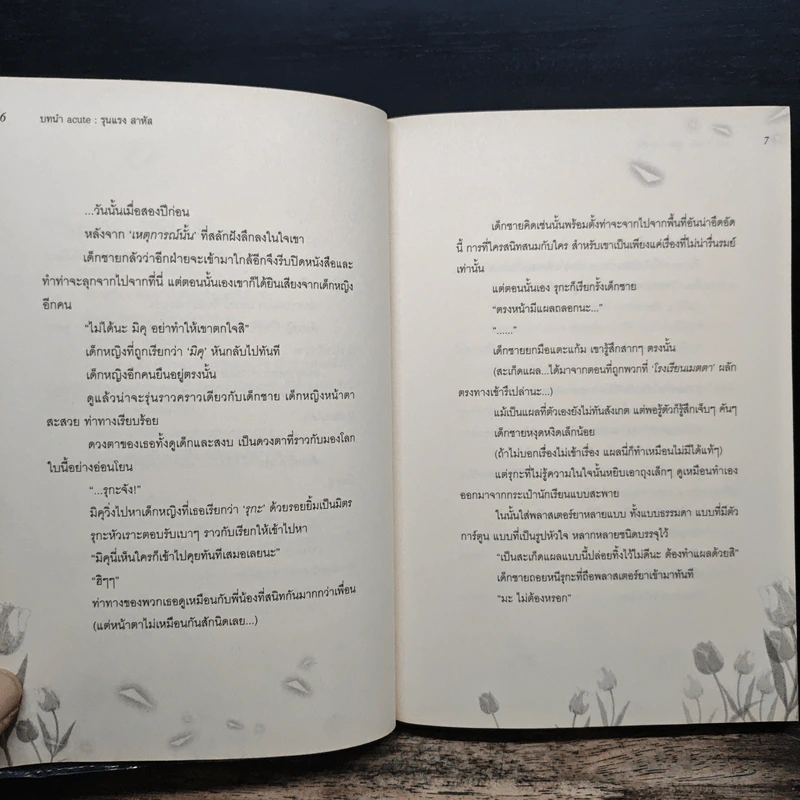 6
บทนำ acute : รุนแรง สาหัส
...วันนั้นเมื่อสองปีก่อน
หลังจาก ‘เหตุการณ์นั้น’ ที่สลักฝังลึกลงในใจเขา
เด็กชายกลัวว่าอีกฝ่ายจะเข้ามาใกล้อีกจึงรีบปิดหนังสือและ
ทำท่าจะลุกจากไปจากที่นี่ แต่ตอนนั้นเองเขาก็ได้ยินเสียงจากเด็กหญิง
อีกคน
“ไม่ได้นะ มิคุ อย่าทำให้เขาตกใจสิ”
เด็กหญิงที่ถูกเรียกว่า ‘มิคุ’ หันกลับไปทันที
เด็กหญิงอีกคนยืนอยู่ตรงนั้น
ดูแล้วน่าจะรุ่นราวคราวเดียวกับเด็กชาย เด็กหญิงหน้าตา
สะสวย ท่าทางเรียบร้อย
ดวงตาของเธอทั้งดูเด็กและสงบ เป็นดวงตาที่ราวกับมองโลก
ใบนี้อย่างอ่อนโยน
“...รุกะจัง!”
มิคุวิ่งไปหาเด็กหญิงที่เธอเรียกว่า ‘รุกะ’ ด้วยรอยยิ้มเป็นมิตร
รุกะหัวเราะตอบรับเบาๆ ราวกับเรียกให้เข้าไปหา
“มิคุนี่เห็นใครก็เข้าไปคุยทันทีเสมอเลยนะ”
“ฮิๆๆ”
ท่าทางของพวกเธอดูเหมือนกับพี่น้องที่สนิทกันมากกว่าเพื่อน
(แต่หน้าตาไม่เหมือนกันสักนิดเลย...)
7
เด็กชายคิดเช่นนั้นพร้อมตั้งท่าจะจากไปจากพื้นที่อันน่าอึดอัด
นี้ การที่ใครสนิทสนมกับใคร สำหรับเขาเป็นเพียงแค่เรื่องที่ไม่น่ารื่นรมย์
เท่านั้น
แต่ตอนนั้นเอง รุกะก็เรียกรั้งเด็กชาย
“ตรงหน้ามีแผลถลอกนะ...”
“......”
เด็กชายยกมือแตะแก้ม เขารู้สึกสากๆ ตรงนั้น
(สะเก็ดแผล...ได้มาจากตอนที่ถูกพวกที่ ‘โรงเรียนเมตตา’ ผลัก
ตรงทางเข้ารึเปล่านะ...)
แม้เป็นแผลที่ตัวเองยังไม่ทันสังเกต แต่พอรู้ตัวก็รู้สึกเจ็บๆ คันๆ
เด็กชายหงุดหงิดเล็กน้อย
(ถ้าไม่บอกเรื่องไม่เข้าเรื่อง แผลนี่ก็ทำเหมือนไม่มีได้แท้ๆ)
แต่รุกะที่ไม่รู้ความในใจนั้นหยิบเอาถุงเล็กๆ ดูเหมือนทำเอง
ออกมาจากกระเป๋านักเรียนแบบสะพาย
ในนั้นใส่พลาสเตอร์ยาหลายแบบ ทั้งแบบธรรมดา แบบที่มีตัว
การ์ตูน แบบที่เป็นรูปหัวใจ หลากหลายชนิดบรรจุไว้
“เป็นสะเก็ดแผลแบบนี้ปล่อยทิ้งไว้ไม่ดีนะ ต้องทำแผลด้วยสิ”
เด็กชายถอยหนีรุกะที่ถือพลาสเตอร์ยาเข้ามาทันที
“มะ ไม่ต้องหรอก”